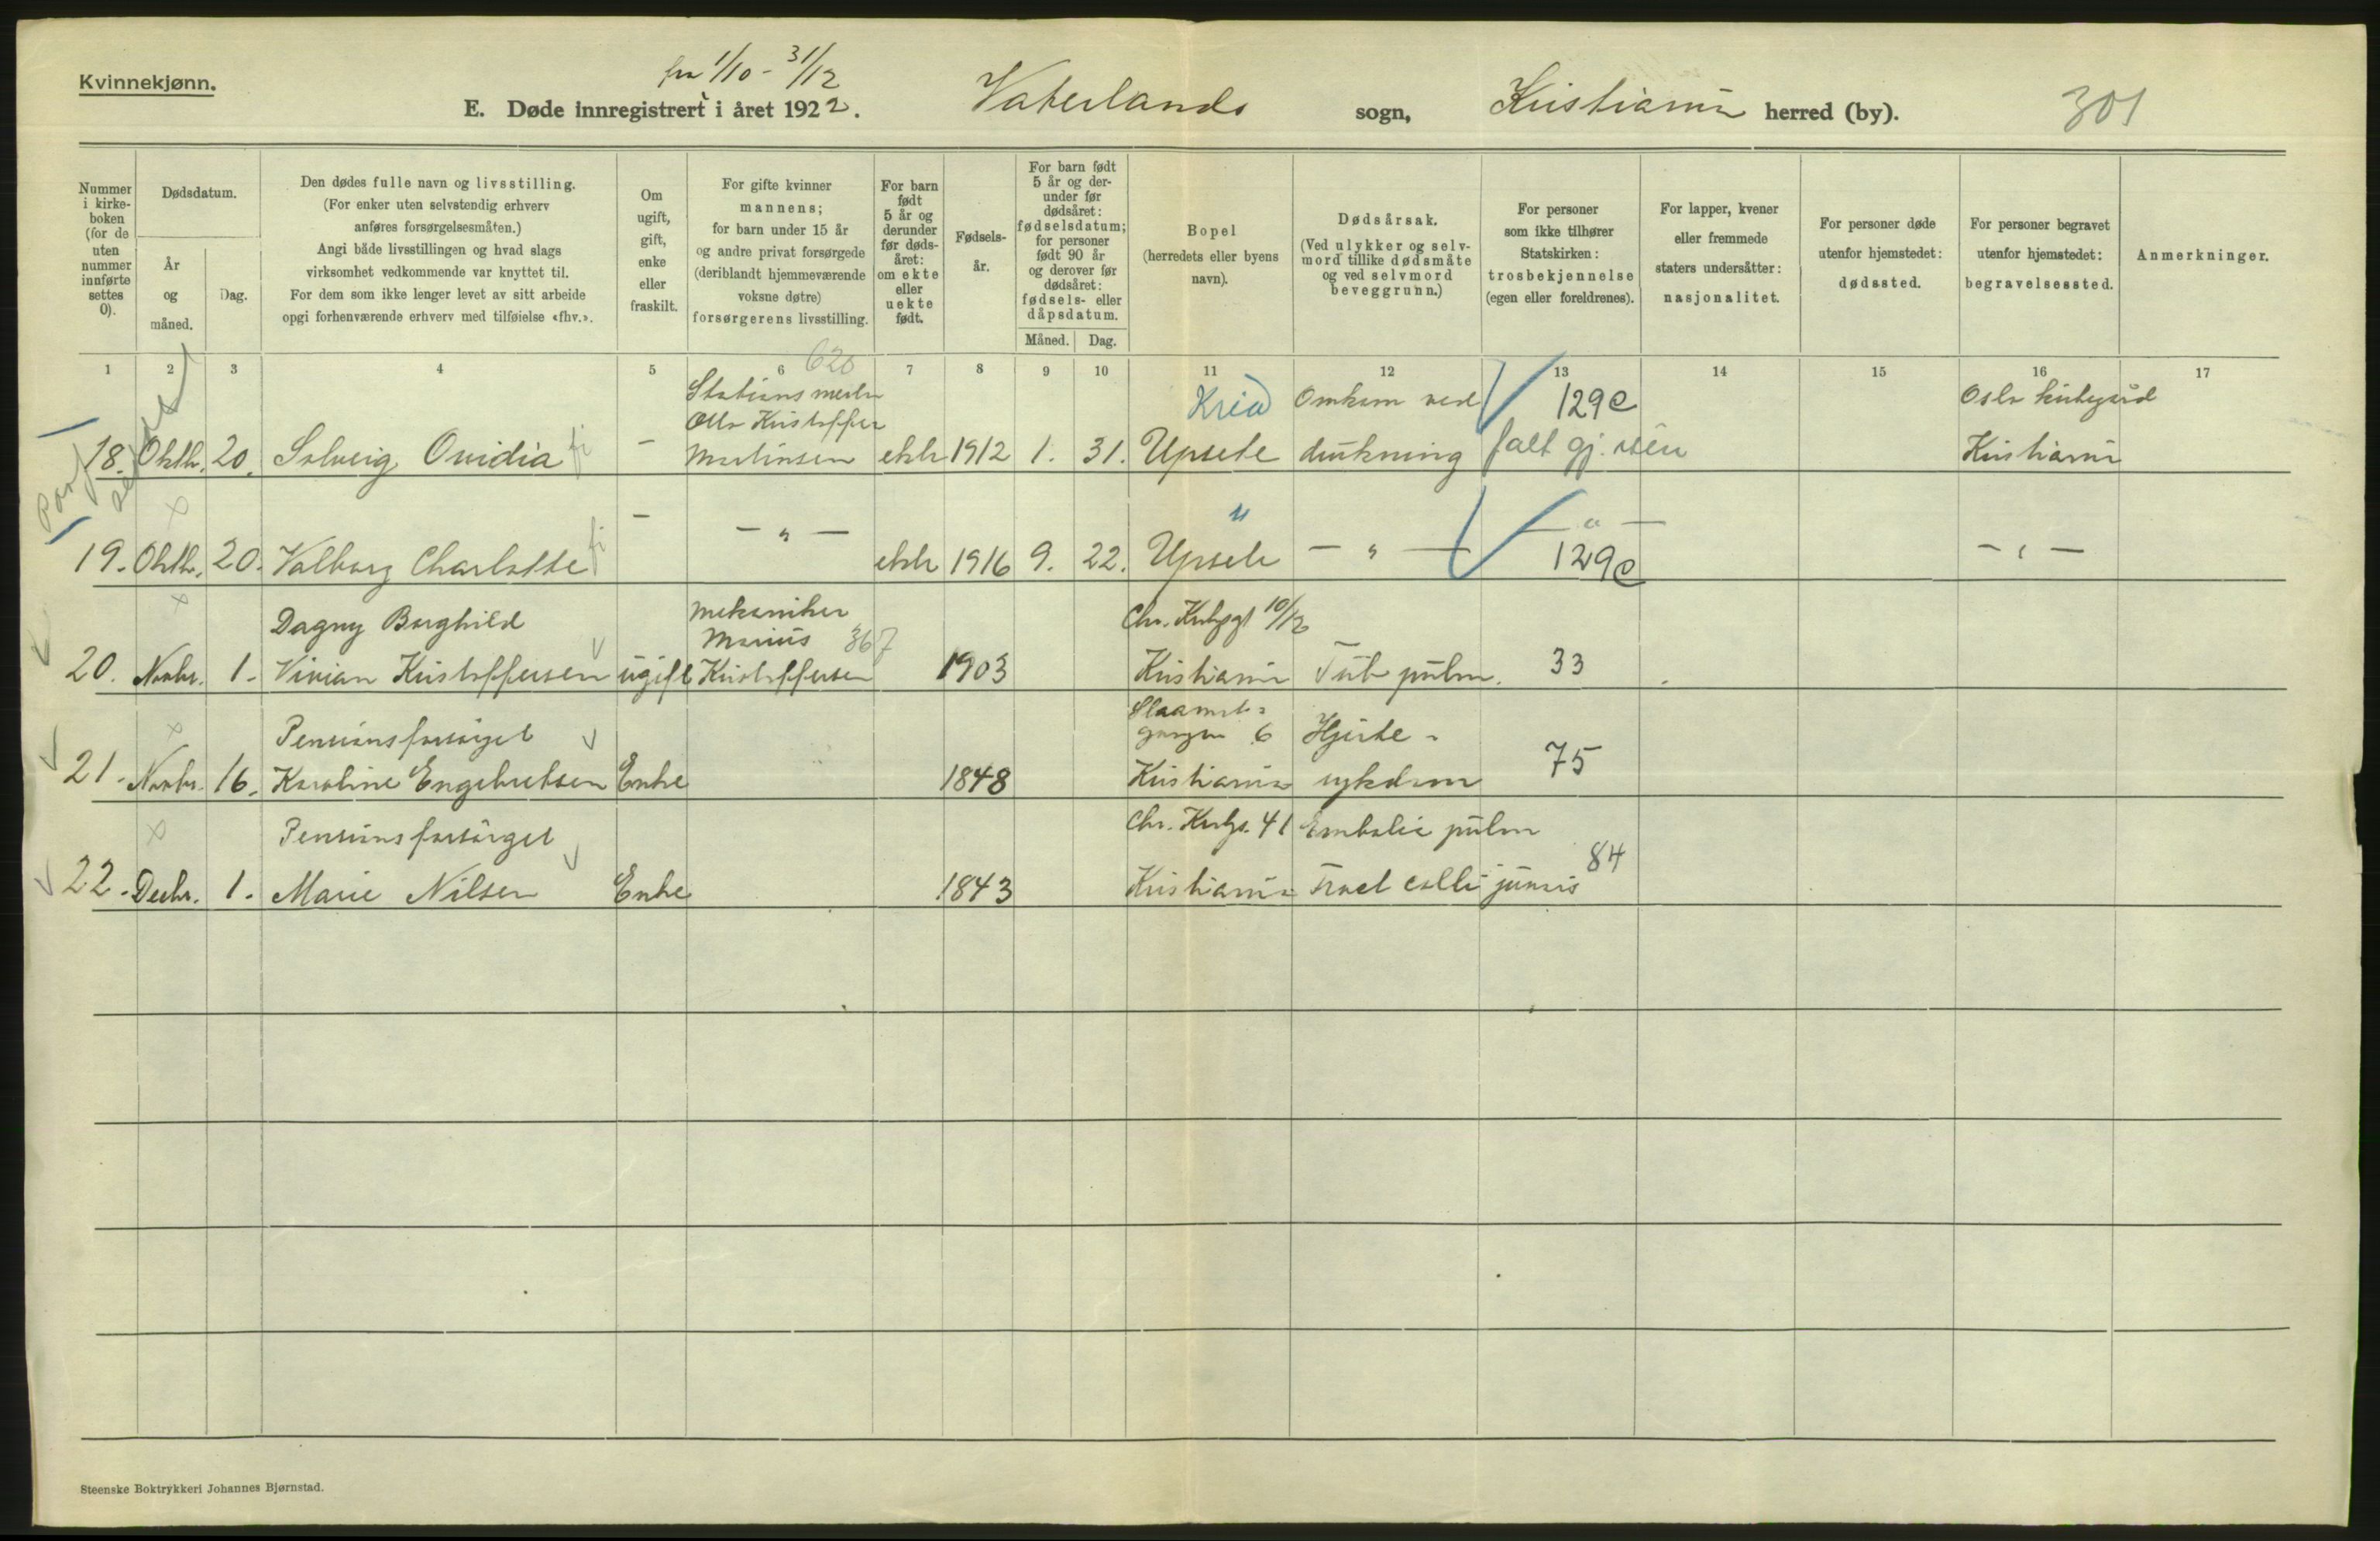 Kvinnekjønn.
fra 1/10 - 31/12
E. Døde innregistrert i året 1922. Vaterlands sogn, Kristiania herred (by). 301
Nummer i kirke-boken (for de uten nummer innførte settes 0).
Dødsdatum.
År og måned.
Dag.
Den dødes fulle navn og livsstilling.
(For enker uten selvstendig erhverv
anføres forsørgelsesmåten.)
Angi både livsstillingen og hvad slags
virksomhet vedkommende var knyttet til.
For dem som ikke lenger levet av sitt arbeide
opgi forhenværende erhverv med tilføielse «fhv.».
Om
ugift,
gift,
enke
eller
fraskilt.
For gifte kvinner
mannens;
for barn under 15 år
og andre privat forsørgede
(deriblandt hjemmeværende
voksne døtre)
forsørgerens livsstilling.
For barn
født
5 år og
derunder
før døds-
året:
om ekte
eller
uekte
født.
Fødsels-
år.
For barn født
5 år og der-
under før
dødsåret:
fødselsdatum;
for personer
født 90 år
og derover før
dødsåret:
fødsels- eller
dåpsdatum.
Måned. Dag.
Bopel
(herredets eller byens
navn).
Dødsårsak.
(Ved ulykker og selv-
mord tillike dødsmåte
og ved selvmord
beveggrunn.)
For personer
som ikke tilhører
Statskirken:
trosbekjennelse
(egen eller foreldrenes).
For lapper, kvener
eller fremmede
staters undersåtter:
nasjonalitet.
For personer døde
utenfor hjemstedet:
dødssted.
For personer begravet
utenfor hjemstedet:
begravelsessted.
Anmerkninger.
1 2 3 4 5 6 7 8 9 10 11 12 13 14 15 16 17
620
Stationsmester Kria Omkom ved 129e Oslo kirkegård
Otto Kristoffer
18. Oktb. 20. Solveig Ovidia - Martinsen ekte 1912 1. 31. Upsete drukning falt gj. isen Kristiania
- - " - " - " -
19. Oktb. 20. Valborg Charlotte ekte 1916 9. 22. Upsete - " - 129e - " -
Dagny Borghild mekaniker Chr. Krohgsgt 10/12
Marius 367
20. Novbr. 1. Vivian Kristoffersen ugift Kristoffersen 1903 Kristiania Tub pulm. 33
Pensionsforsørget gangen 6 Hjerte-
21. Novbr. 16. Karoline Engebretsen Enke 1848 Kristiania sykdom 75
Pensionsforsørget Chr. Krohgs. 41 Embolie pulm
22. Decbr. 1. Marie Nilsen Enke 1843 Kristiania Fract colli 84
Steenske Boktrykkeri Johannes Bjørnstad.